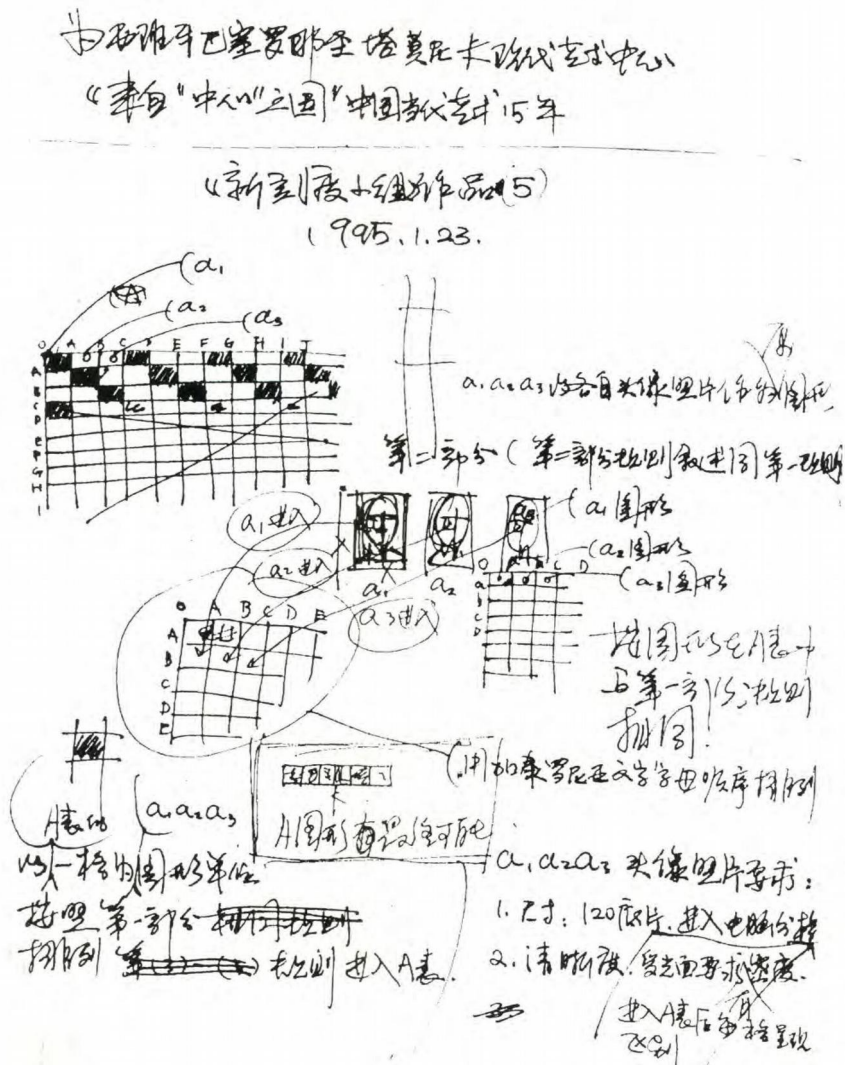 为西班牙巴塞罗那圣塔莫尼卡现代艺术中心
《来自"中心"之国"中国当代艺术15年
《新刻度小组作品(5)
1995.1.23.
a₁
A
a₂
a₃
O A B C D E F G H I J
A
B
C
D
E
F
G
H
I
a₁a₂a₃以各自头像照片作为图形
第二部分(第二部分规则叙述同第一规则
a₁进入
a₂进入
a₃进入
a₁ a₂
a₁图形
a₂图形
a₃图形
O A B C D
a
b
c
D
O A B C D E
A
B
C
D
E
按图形在A表中
与第一部分规则
相同
A表
a₁a₂a₃
文字字母顺序排列
A图形
以一格为图形单位
按照第一部分
排列 规则 进入A表.
a₁a₂a₃ 头像照片要求:
1.尺寸:120底片.进入电脑分格
2.清晰度.
进入A表后每格呈现
区别